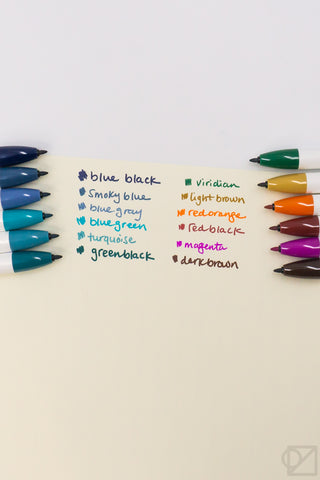 blue black
smoky blue
blue gray
blue green
turquoise
green black
viridian
light brown
red orange
red black
magenta
dark brown